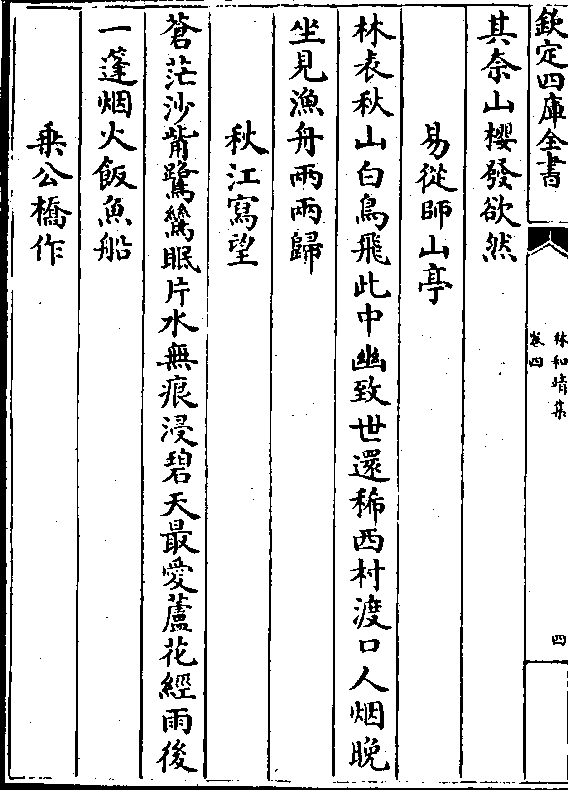 欽定四庫全書
林和靖集
卷四
四
其奈山櫻發欲然
易從師山亭
林表秋山白鳥飛此中幽致世還稀西村渡口人烟晚
坐見漁舟兩兩歸
秋江寫望
蒼茫沙觜鷺鷥眠片水無痕浸碧天最愛蘆花經雨後
一蓬烟火飯魚船
乗公橋作